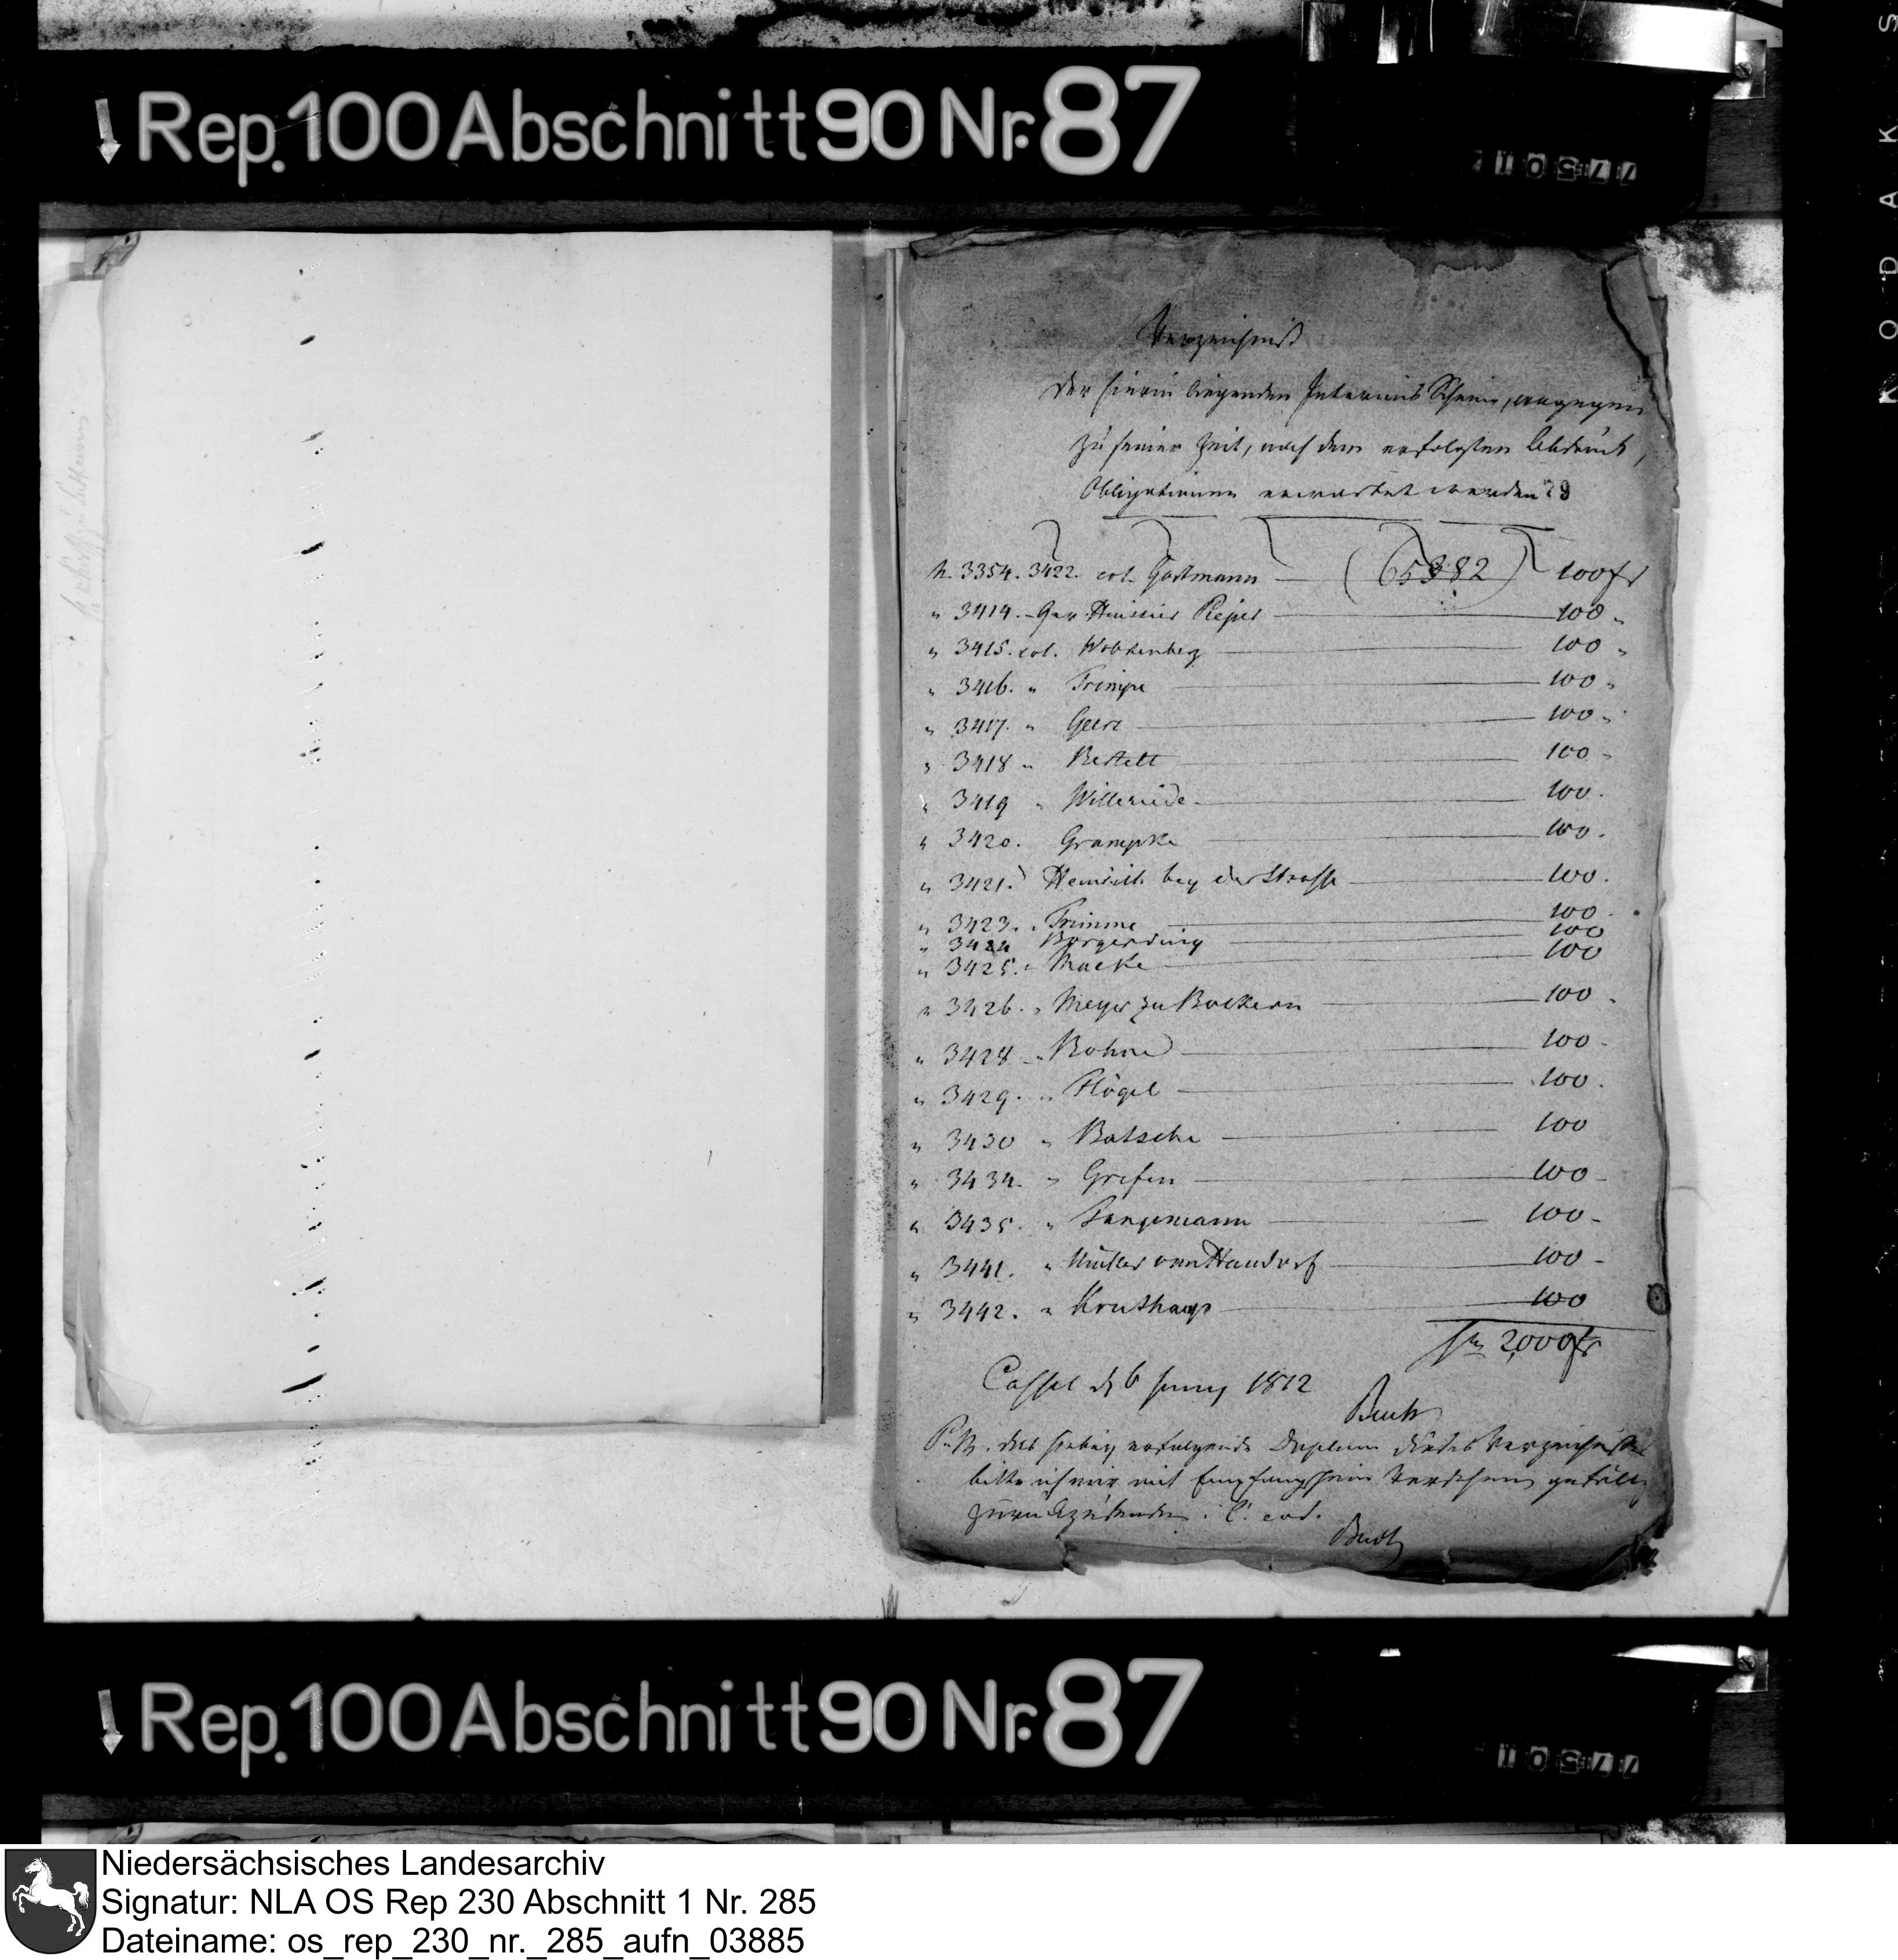 Rep. 100 Abschnitt 90 Nr. 87
KODAK S
Verzeichniß
der hierin liegenden Interims Scheine, wogegen
zu seiner Zeit, nach dem erfolgten Abdruck,
Obligationen erwartet werden
N. 3354. 3422. col. Gastmann — (65382) 100 fr
" 3414. - Piejer — 100 "
" 3415. col. Wobkenberg — 100 "
" 3416. " Trimpe — 100 "
" 3417. " Geers — 100 "
" 3418 " Bertelt — 100 "
" 3419 " Willeriede — 100.
" 3420. Grampke — 100.
" 3421. Heinrich bey der Strasse — 100.
" 3423. " Frimme — 100
" 3424 Borgerding — 100
" 3425. " Macke — 100
" 3426. " Meyer zu Bockern — 100.
" 3428 " Bohne — 100 -
" 3429. " Flögel — 100.
" 3430 " Batsche — 100
" 3434. " Grefen — 100 -
" 3435. " Tangemann — 100 -
" 3441. " Müller von Handorf — 100 -
" 3442. " Kruthaup — 100
2000 fr
Cassel d 6 Juny 1812
P.N. das hiebey erfolgende Duplum dieses Verzeichnisses
bitte ich mir mit Empfangschein versehen gefällig
zurückzusenden. C. eod.
Rep. 100 Abschnitt 90 Nr. 87
Niedersächsisches Landesarchiv
Signatur: NLA OS Rep 230 Abschnitt 1 Nr. 285
Dateiname: os_rep_230_nr._285_aufn_03885